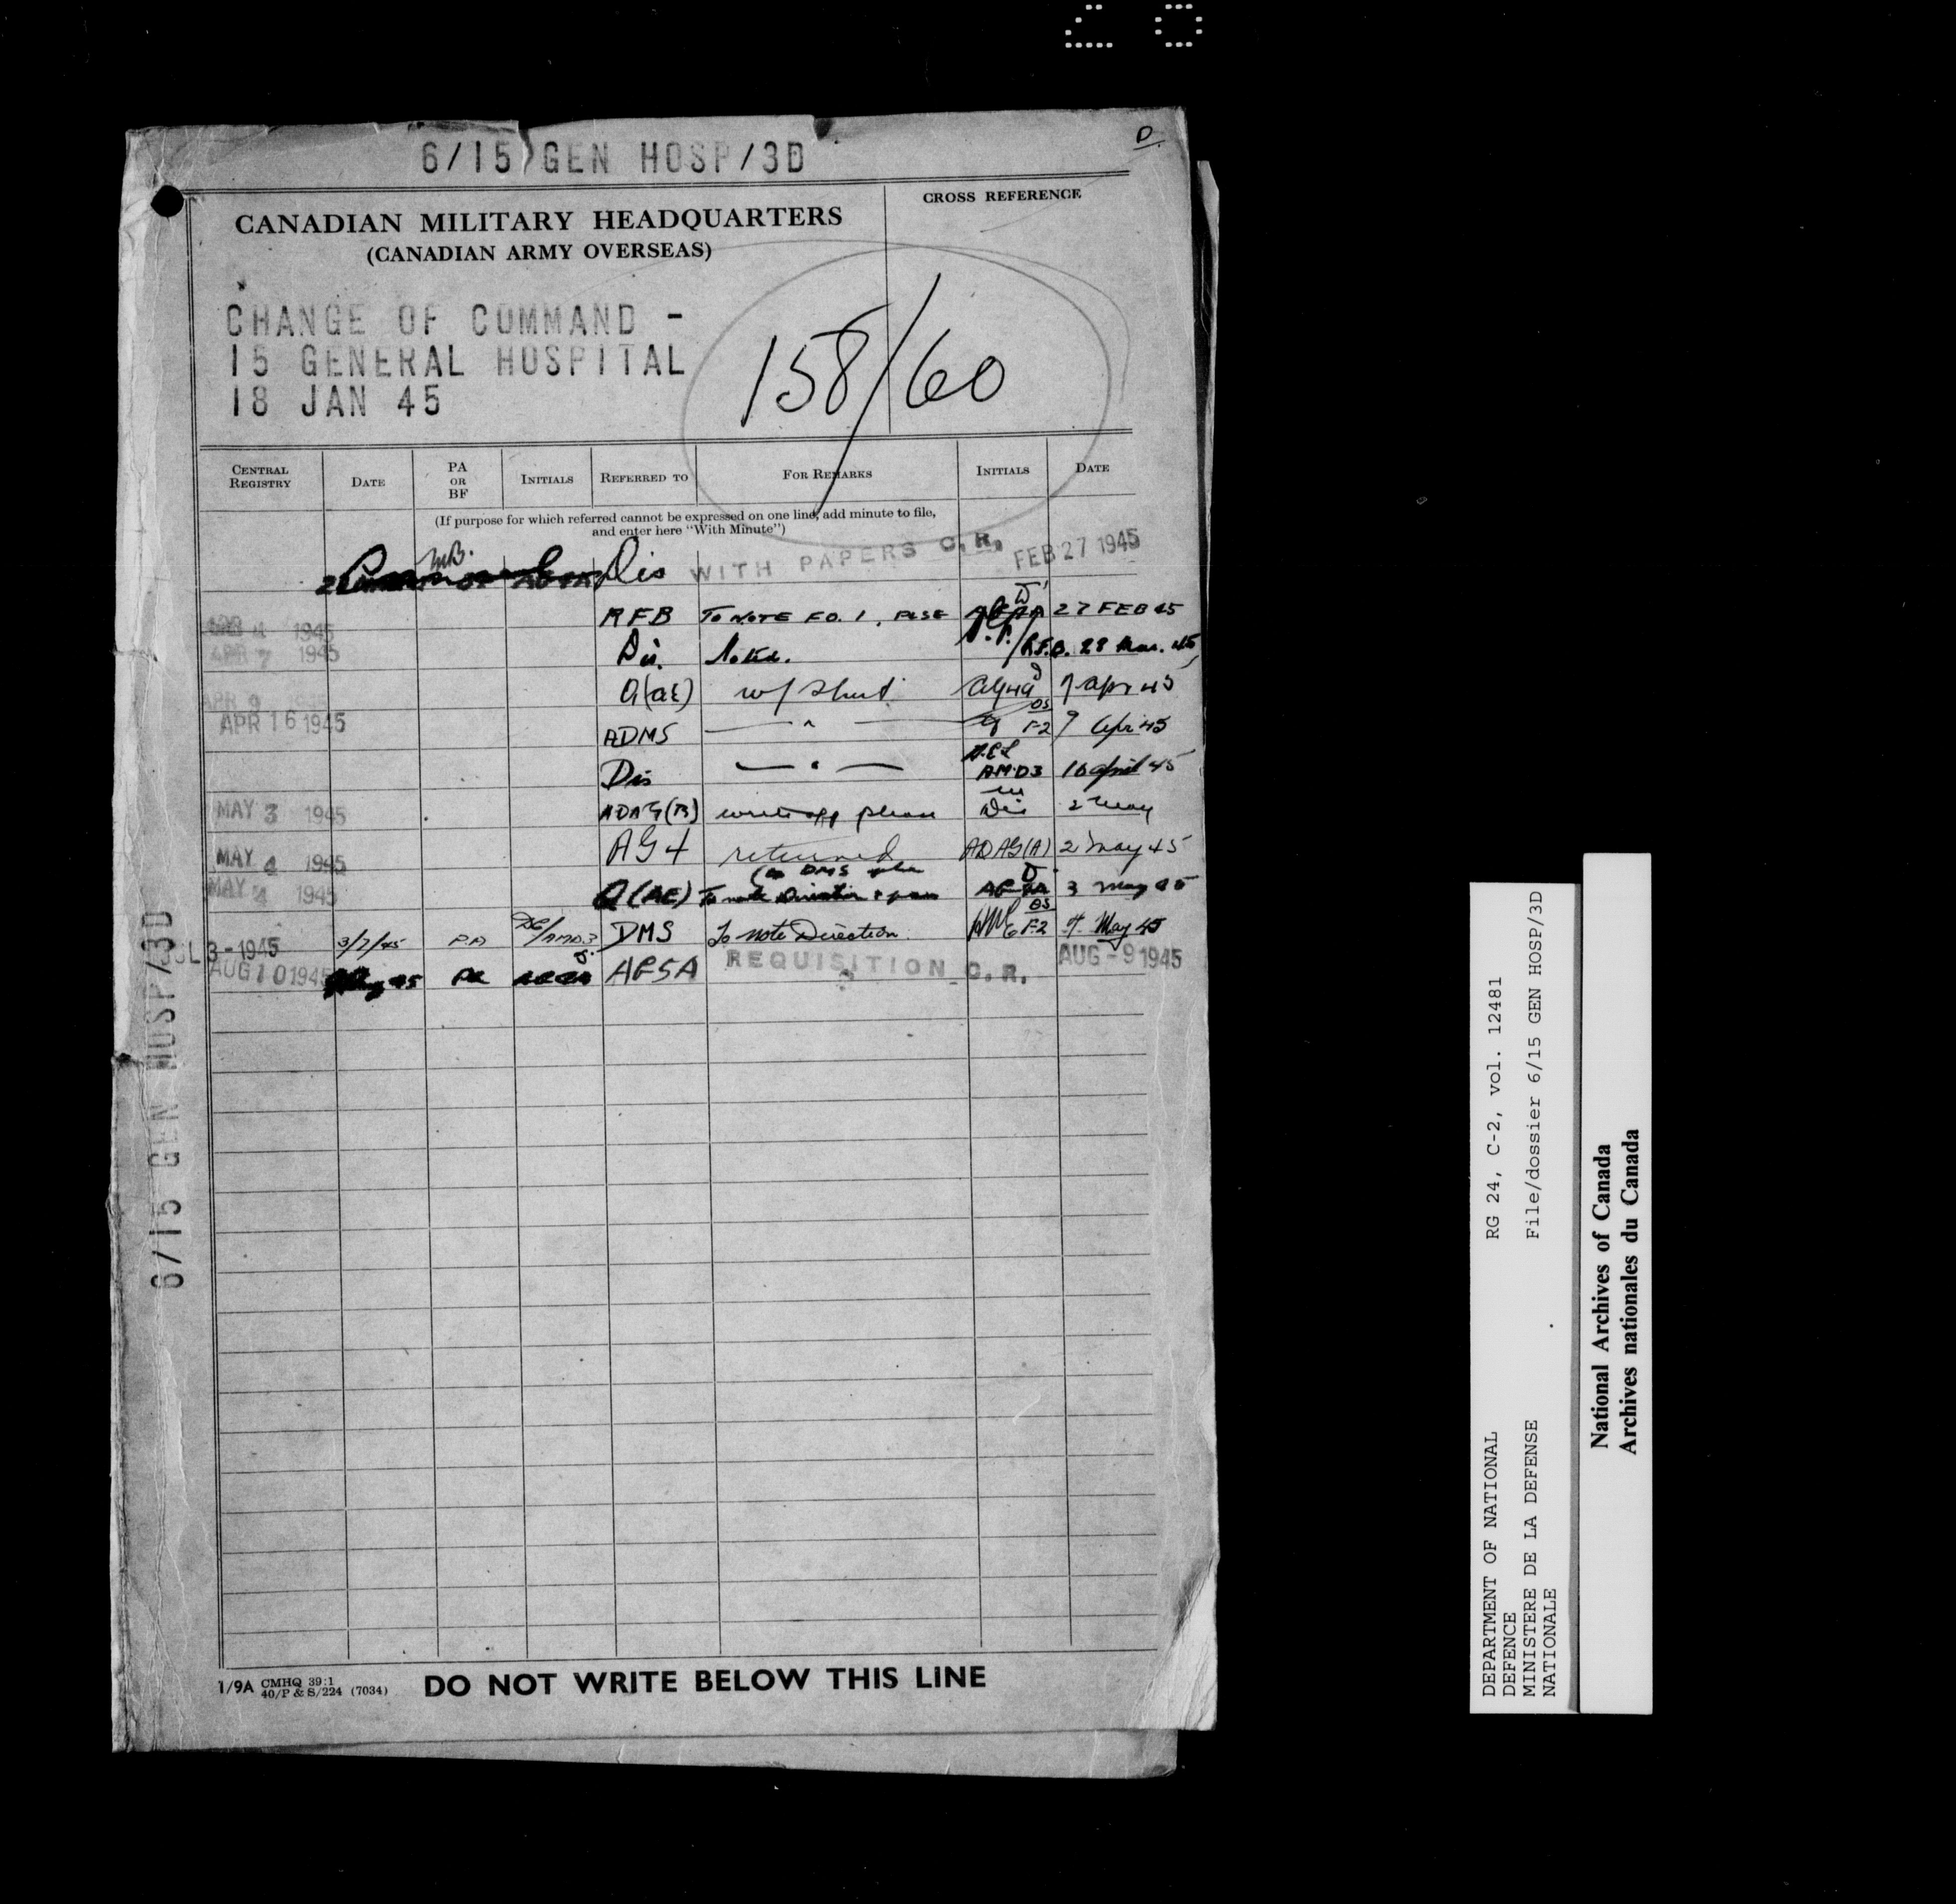 D.
6/15 GEN HOSP/3D
CANADIAN MILITARY HEADQUARTERS
(CANADIAN ARMY OVERSEAS)
CROSS REFERENCE
CHANGE OF COMMAND -
15 GENERAL HOSPITAL
18 JAN 45
158/60
CENTRAL REGISTRY DATE PA OR BF INITIALS REFERRED TO FOR REMARKS INITIALS DATE
(If purpose for which referred cannot be expressed on one line, add minute to file,
and enter here "With Minute")
Dis WITH PAPERS C.R. FEB 27 1945
APR 4 1945 RFB TO NOTE FO. 1, PLSE 27 FEB 45
APR 7 1945 Dis. Noted. R.F.B. 28 Mar. 45
APR 9 Q(AE) 7 Apr 45
APR 16 1945 ADMS — " — F2 9 Apr 45
Dis — " — AMD3 16 April 45
MAY 3 1945 ADAG(B) please Dis 2 May
MAY 4 1945 AG4 returned ADAG(A) 2 May 45
MAY 4 1945 Q(AE) To note Direction 3 May 45
JUL 3-1945 3/7/45 P.A AMD.3 DMS To note Direction. F2 4 May 45
AUG 10 1945 45 PA AG5A REQUISITION C.R. AUG -9 1945
6/15 GEN HOSP/3D
1/9A CMHQ 39:1
40/P & S/224 (7034)
DO NOT WRITE BELOW THIS LINE
DEPARTMENT OF NATIONAL
DEFENCE
MINISTERE DE LA DEFENSE
NATIONALE
RG 24, C-2, vol. 12481
File/dossier 6/15 GEN HOSP/3D
National Archives of Canada
Archives nationales du Canada